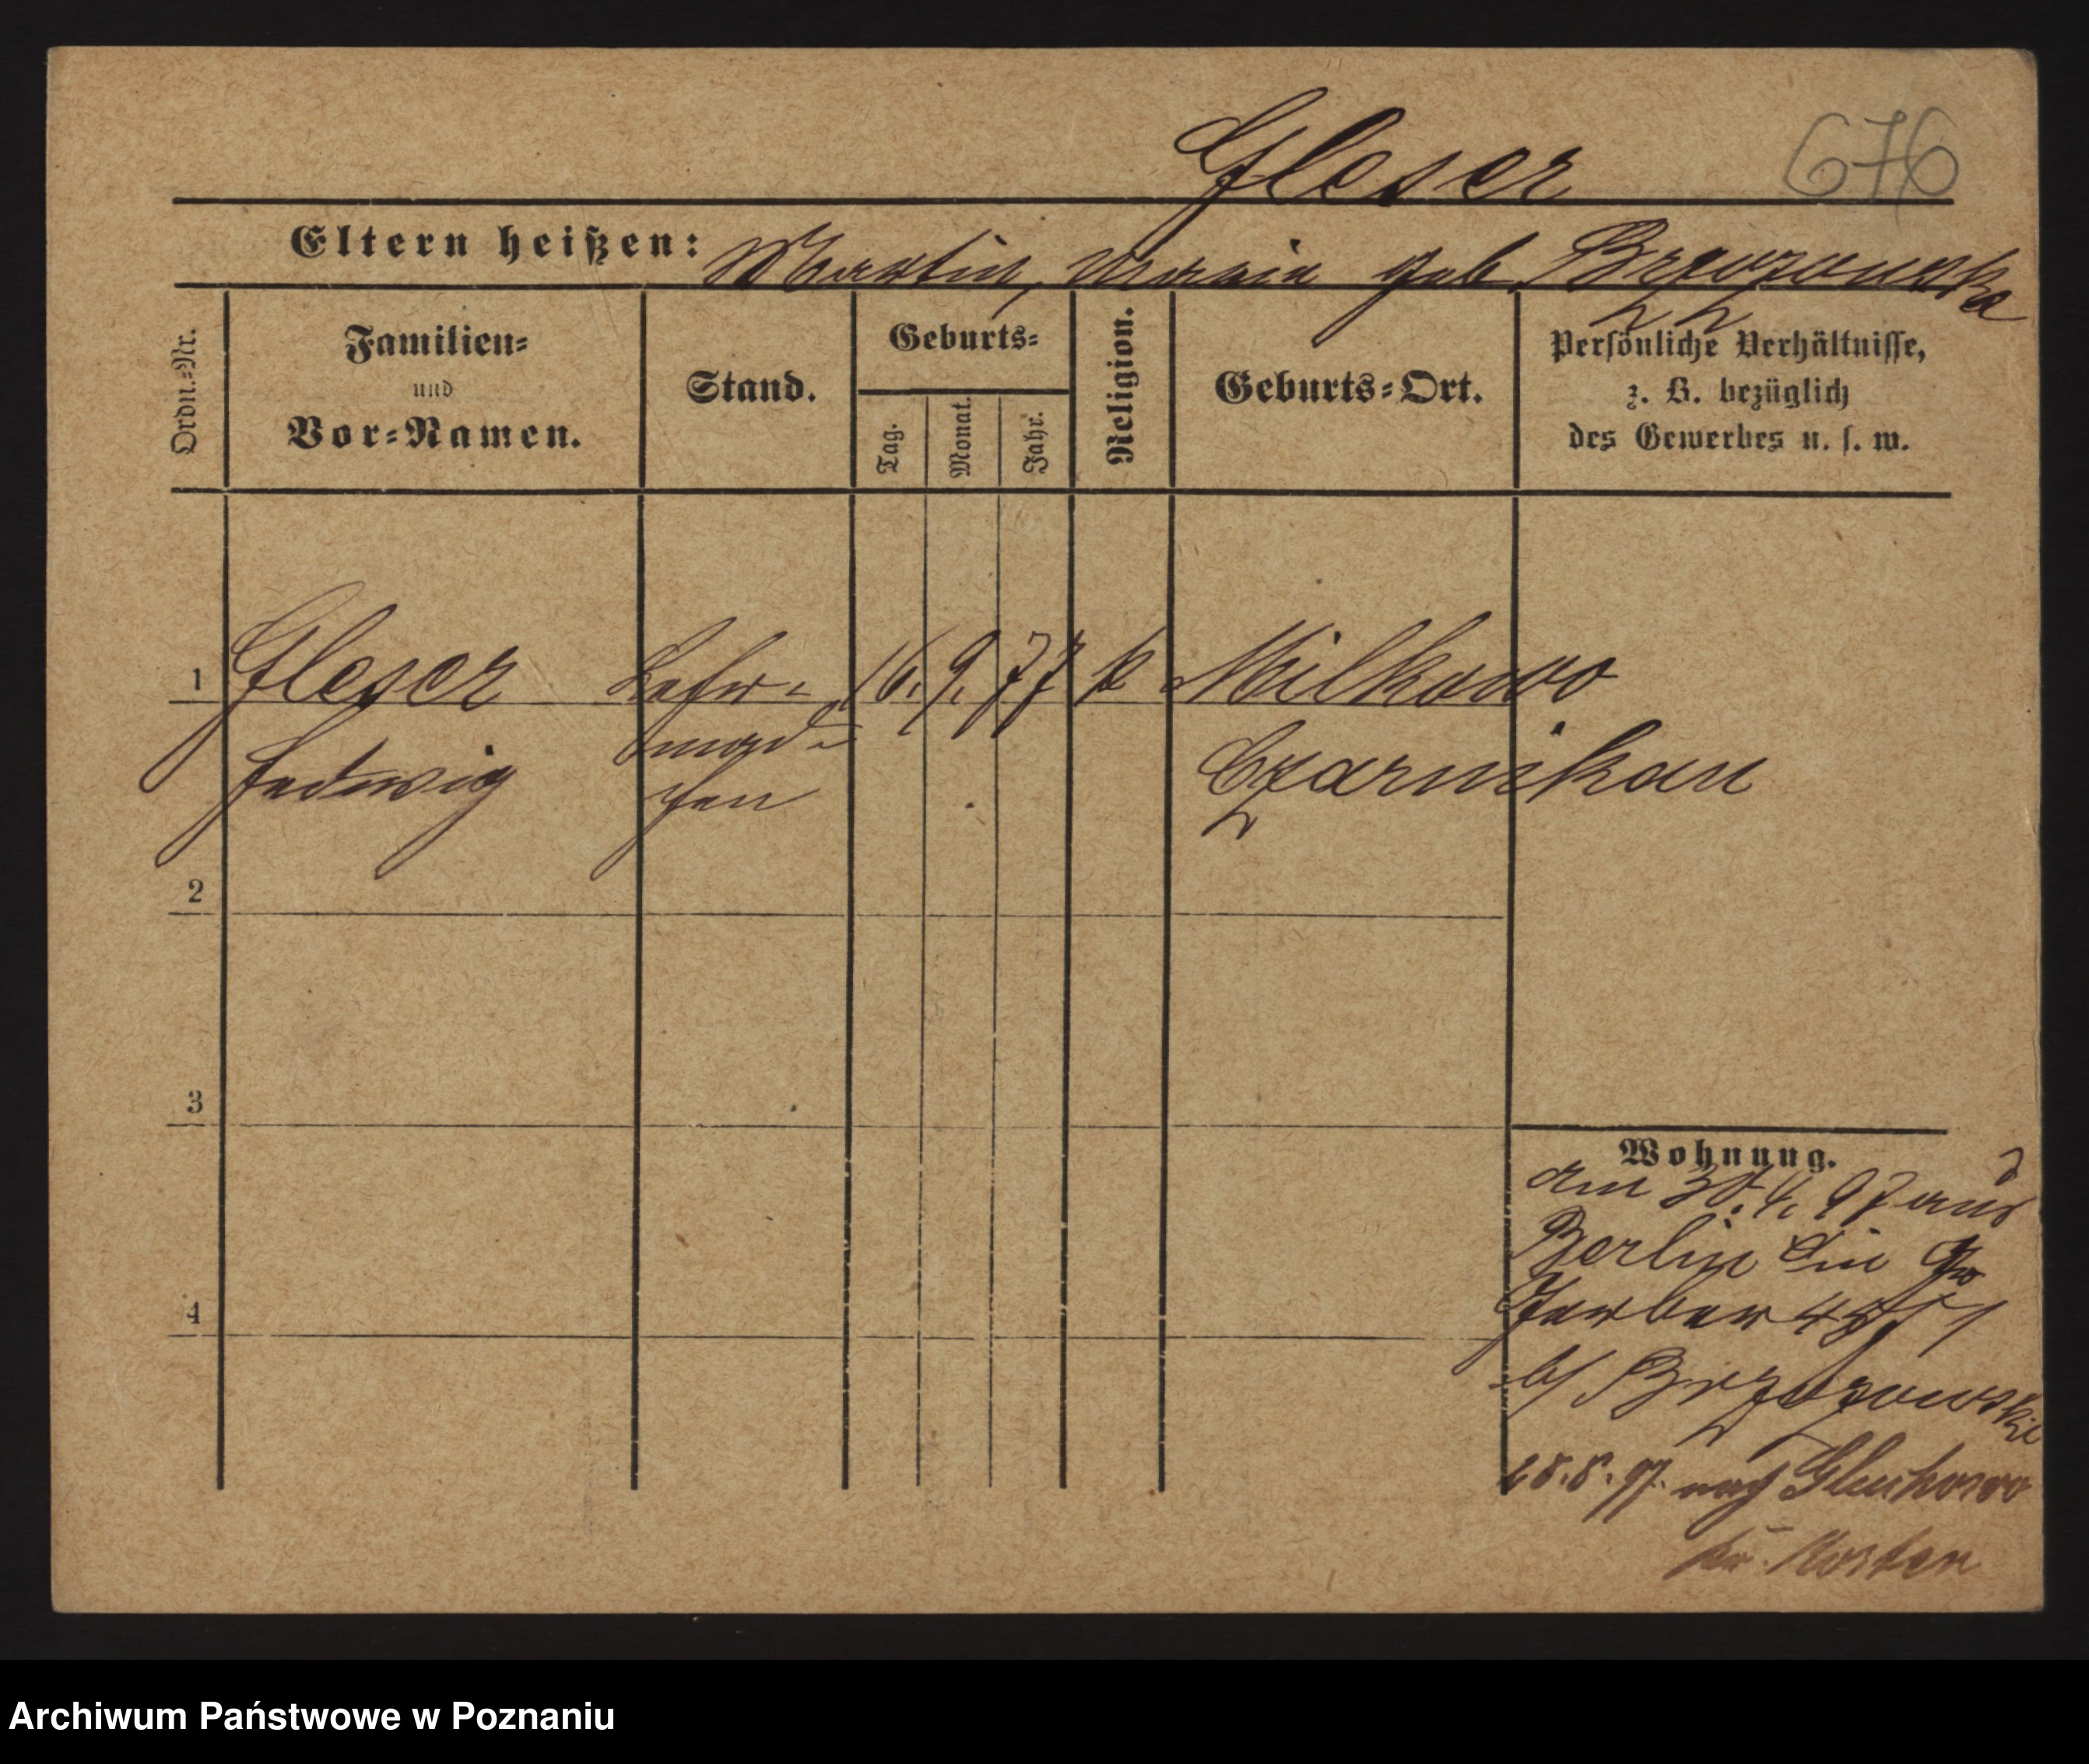 Gleser 676
Eltern heißen: Martin, Maria geb. Brzozowska
Ordn.=Nr.
Familien=
und
Vor=Namen.
Stand.
Geburts=
Tag.
Monat.
Jahr.
Religion.
Geburts=Ort.
Persönliche Verhältnisse,
z. B. bezüglich
des Gewerbes u. s. w.
1 Gleser Lehr= 16. 9. 77 k Milkowo
Hedwig mäd=
chen
Czarnikau
2
3
4
Wohnung.
am 30. 4. 97 aus
Berlin
Gerber
b/ Brzozowski
28. 8. 97. nach Gluchowo
Kr. Kosten
Archiwum Państwowe w Poznaniu